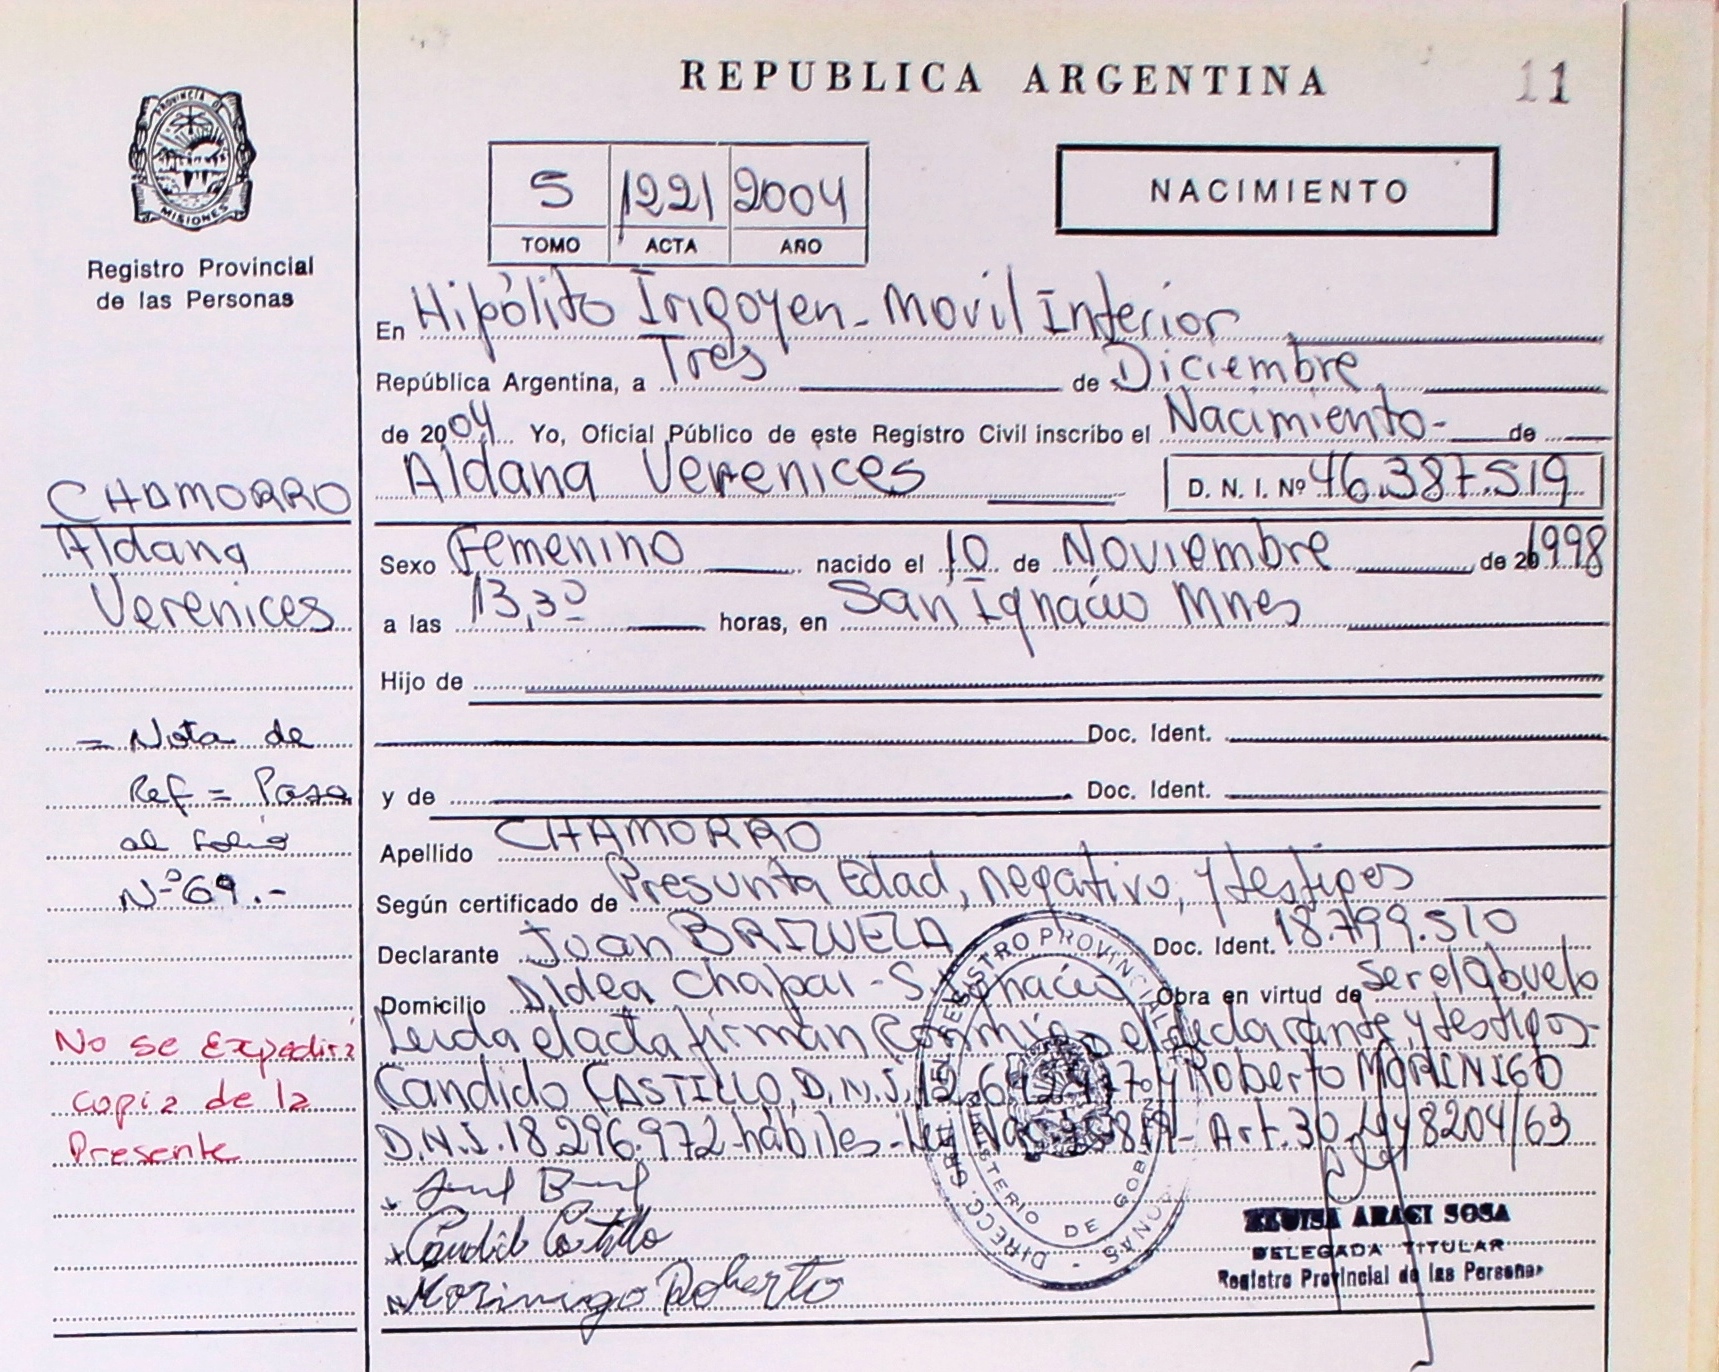 REPUBLICA ARGENTINA
11
PROVINCIA D
MISIONES
Registro Provincial
de las Personas
5 1221 2004
TOMO ACTA AÑO
NACIMIENTO
En Hipólito Irigoyen - Movil Interior
República Argentina, a Tres de Diciembre
de 2004 Yo, Oficial Público de este Registro Civil inscribo el Nacimiento - de
Aldana Verenices D. N. I. Nº 46.387.519
CHAMORRO
Aldana
Verenices
Sexo Femenino nacido el 10 de Noviembre de 1998
a las 13,30 horas, en San Ignacio Mnes
Hijo de
Doc. Ident.
y de Doc. Ident.
= Nota de
Ref = Pasa
al folio
Nº 69.-
Apellido CHAMORRO
Según certificado de Presunta Edad, negativo, y testigos
Declarante Juan BRIZUELA Doc. Ident. 18.799.510
Domicilio Aldea Chapai - S. Ignacio Obra en virtud de ser el abuelo
Leida el acta firman conmigo el declarante y testigos-
Candido CASTILLO, D.N.I. y Roberto MORINIGO
D.N.I. 18.296.972 habiles - Ley Art. 30 Ley 8204/63
No se Expedirá
copia de la
Presente
Candido Castillo
Morinigo Roberto
DIRECC. GRAL. DEL REGISTRO PROVINCIAL DE LAS PERSONAS
MINISTERIO DE GOBIERNO
ELOISA ARACI SOSA
DELEGADA TITULAR
Registro Provincial de las Personas